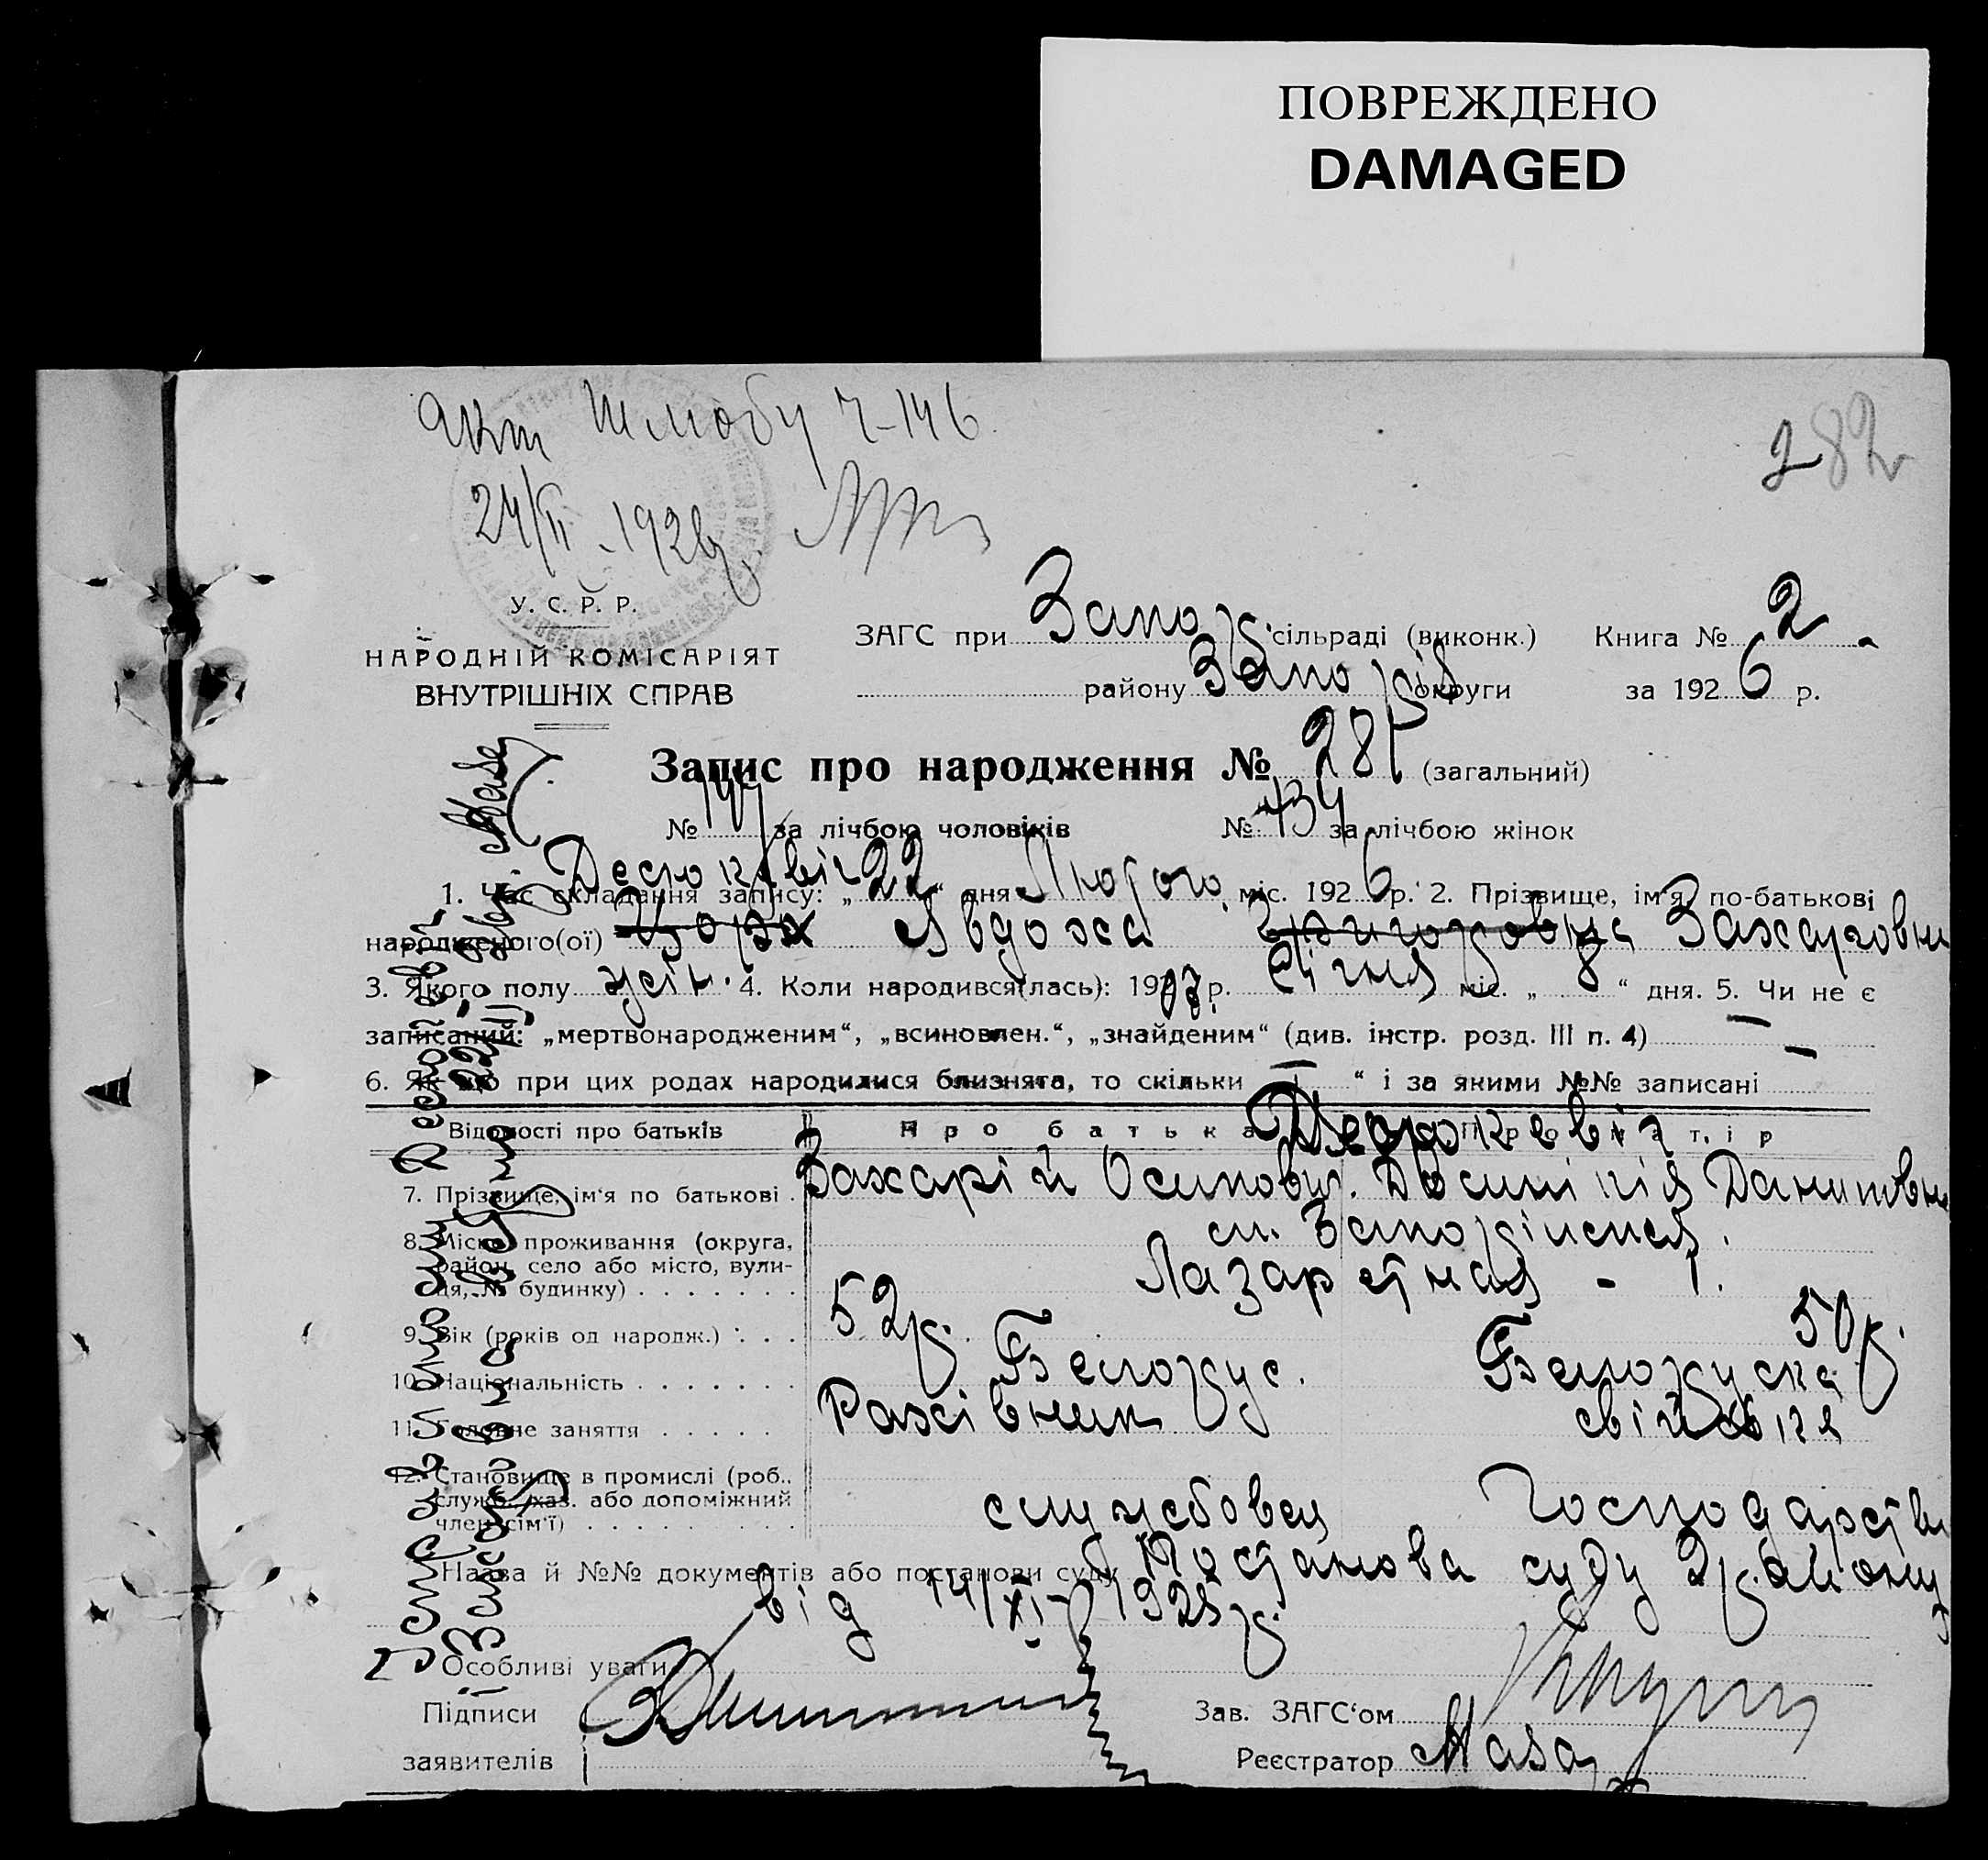 ПОВРЕЖДЕНО
DAMAGED
Акт Шлюбу Ч-146
282
24/II - 192
У. С. Р. Р.
НАРОДНІЙ КОМІСАРІЯТ
ВНУТРІШНІХ СПРАВ
ЗАГС при Запор. сільраді (виконк.) Книга № 2
району Запоріз округи за 1926 р.
Запис про народження № 281 (загальний)
№ 147 за лічбою чоловіків № 134 за лічбою жінок
Десюкевіч
1. Час складання запису: „22“ дня Лютого міс. 1926 р. 2. Прізвище, ім‘я, по-батькові
народженого(ої) Явдоха Захаровн
3. Якого полу жін. 4. Коли народився(лась): 1907 р. Січня міс. „8“ дня. 5. Чи не є
записаний: „мертвонародженим“, „всиновлен.“, „знайденим“ (див. інстр. розд. III п. 4) —
6. Як що при цих родах народилися близнята, то скільки — “ і за якими №№ записані —
Відомості про батьків Про батька Про матір
Десюкевіч
7. Прізвище, ім‘я по батькові . Захарій Осипович. Даниловн
8. Місце проживання (округа, ст. Запоріжжя.
район, село або місто, вули- Лазаретная - 1.
ця, № будинку) . . . . . . .
9. Вік (років од народж.) . . . 52 р. 50 р.
10. Національність . . . . . . . Белорус. Белоруска
11. Головне заняття . . . . . Рахівник свійське
12. Становище в промислі (роб.,
служб., хаз. або допоміжний службовец Господарств
член сім‘ї) . . . . . . . . . .
Назва й №№ документів або постанови суду Постанова суду 2 району
від 14/XI - 1925 р.
Особливі уваги
Підписи Зав. ЗАГС‘ом
заявителів Реєстратор